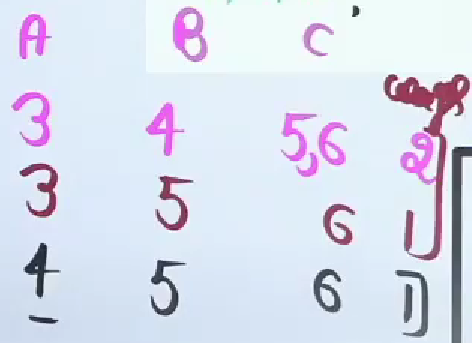 A B C
3 4 5,6 2
3 5 6 1
4 5 6 1